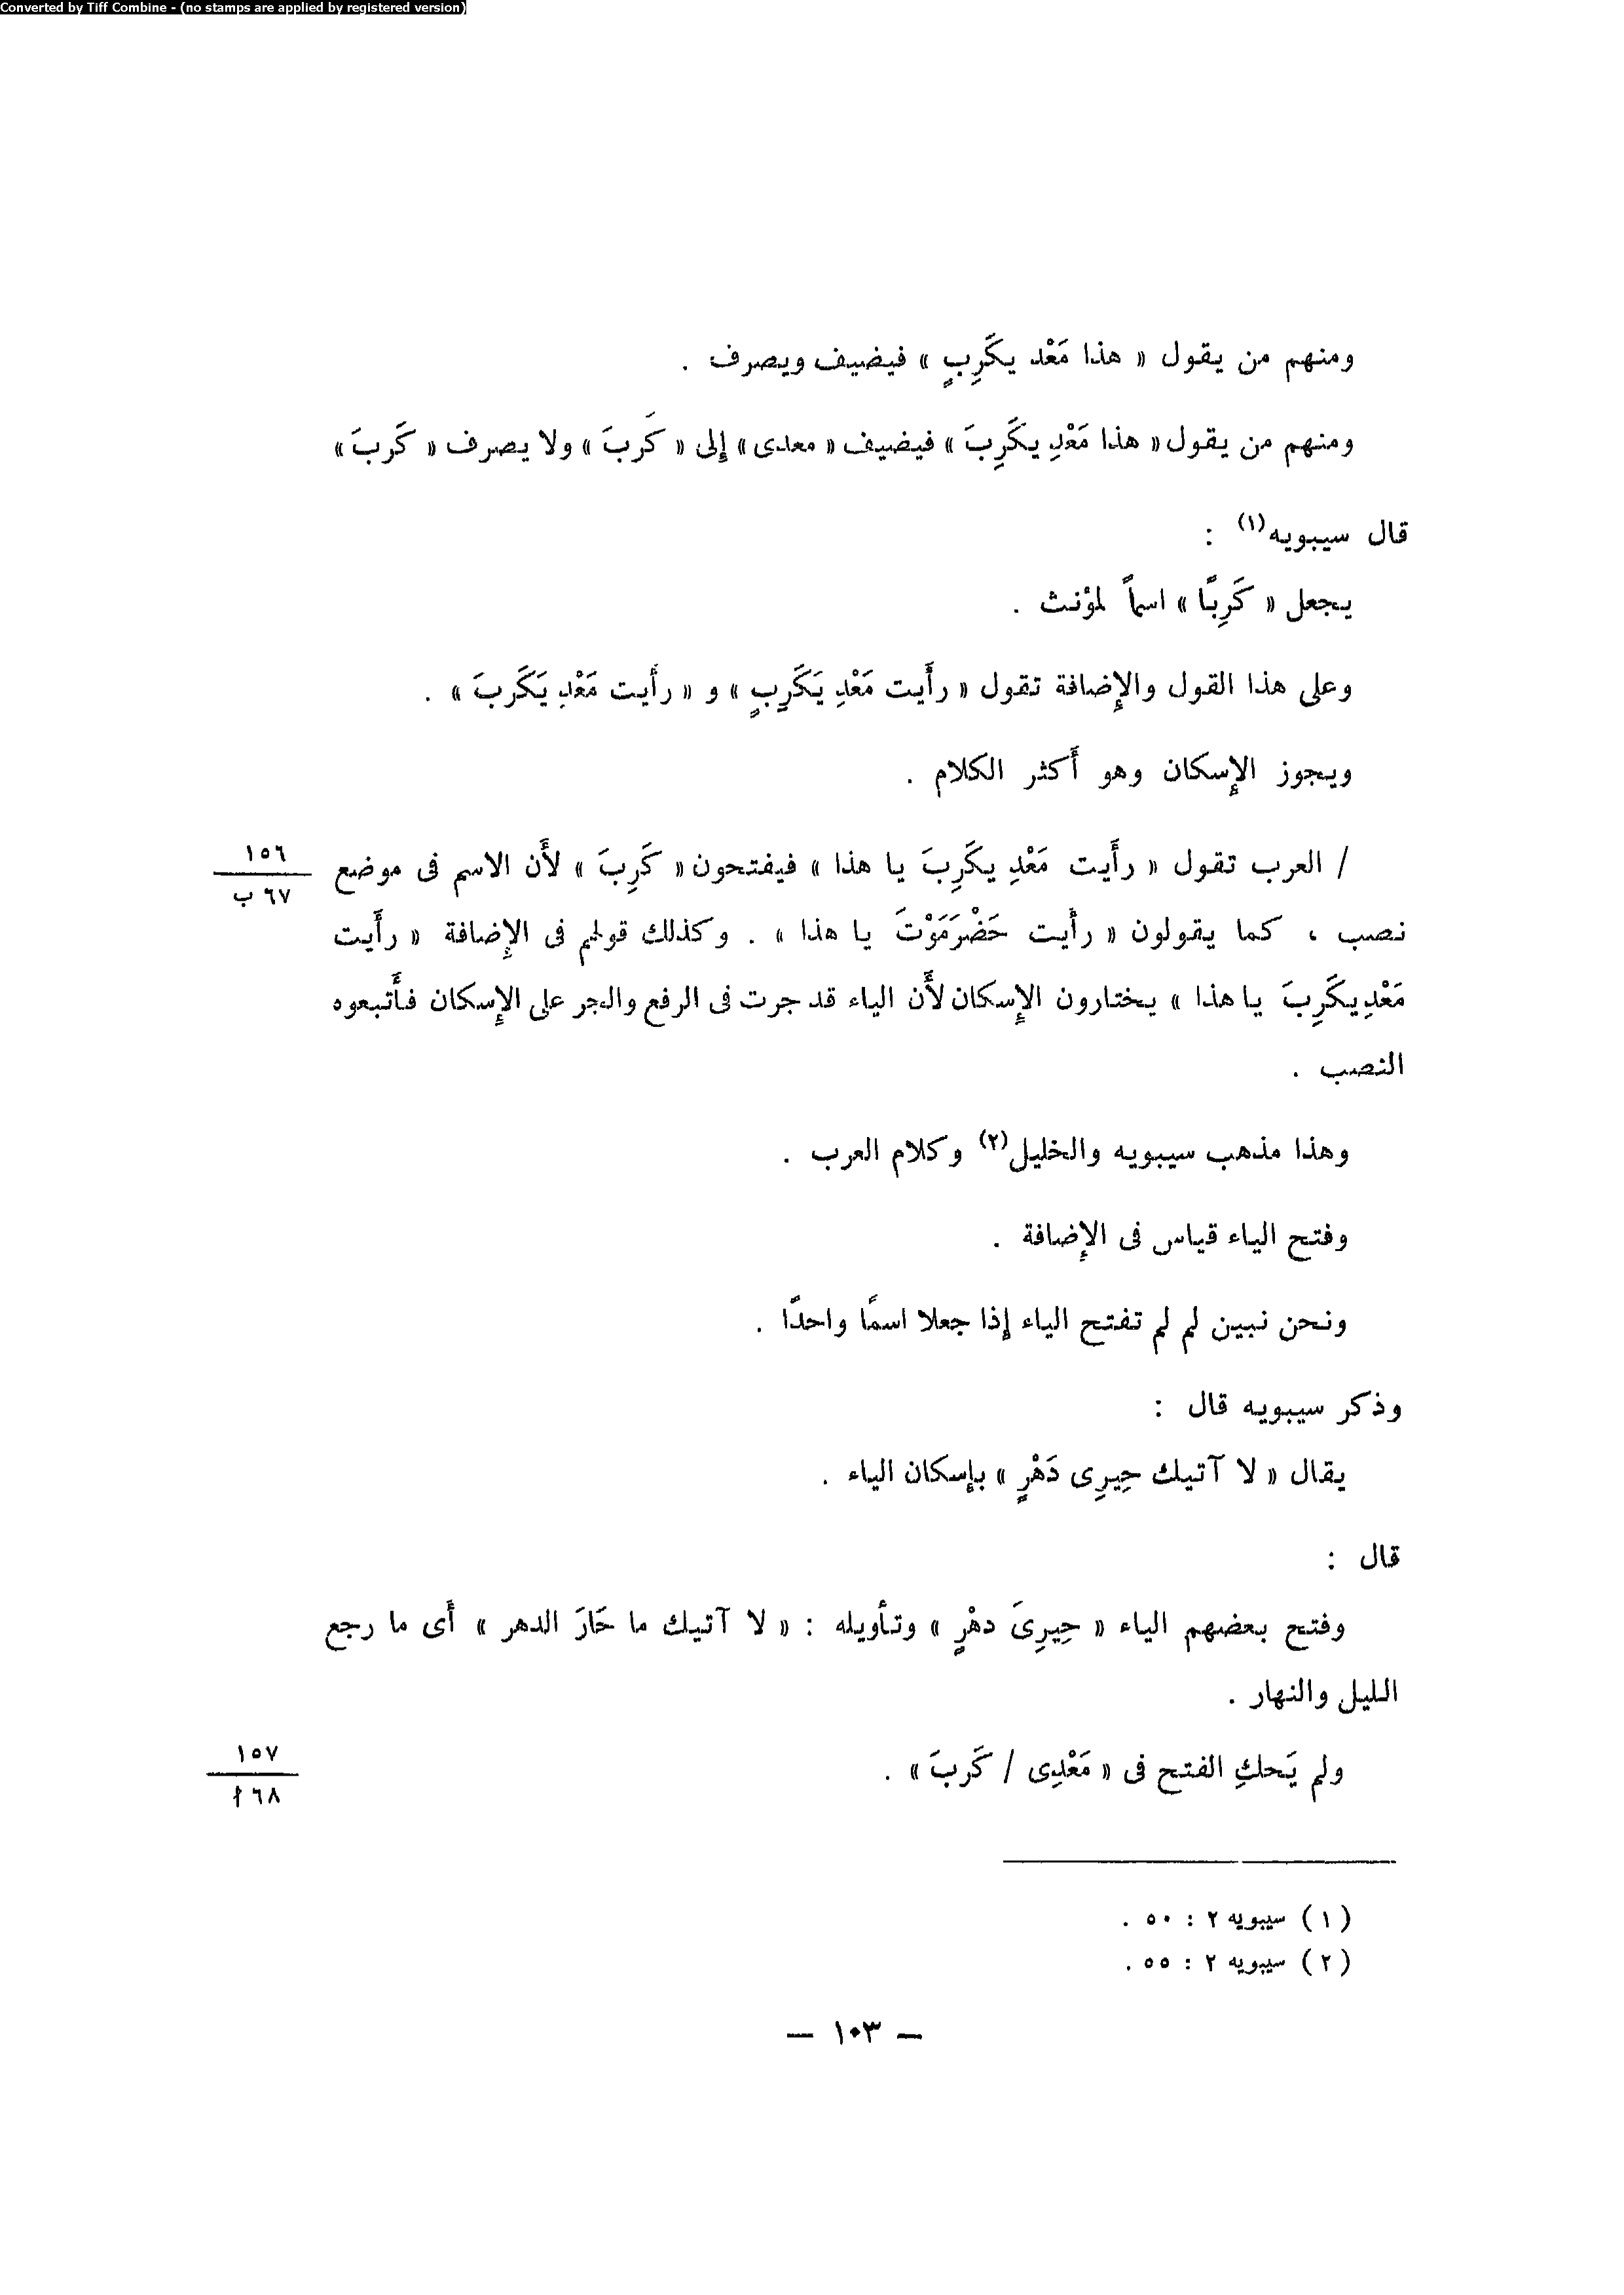 Converted by Tiff Combine - (no stamps are applied by registered version)
ومنهم من يقول « هذا مَعْد يكَرِبٍ » فيضيف ويصرف .
ومنهم من يقول « هذا مَعْدِ يكَرِبَ » فيضيف « معدى » إلى « كَربَ » ولا يصرف « كَربَ »
قال سيبويه(١) :
يجعل « كَرِبًا » اسماً لمؤنث .
وعلى هذا القول والإضافة تقول « رأَيت مَعْدِ يَكَرِبٍ » و « رأَيت مَعْدِ يَكَربَ » .
ويجوز الإسكان وهو أَكثر الكلام .
/ العرب تقول « رأَيت مَعْدِ يكَرِبَ يا هذا » فيفتحون « كَرِبَ » لأَن الاسم فى موضع
١٥٦
٦٧ ب
نصب ، كما يقولون « رأَيت حَضْرَمَوْتَ يا هذا » . وكذلك قولهم فى الإضافة « رأَيت
مَعْدِيكَرِبَ يا هذا » يختارون الإسكان لأَن الياء قد جرت فى الرفع والجر على الإسكان فأَتبعوه
النصب .
وهذا مذهب سيبويه والخليل(٢) وكلام العرب .
وفتح الياء قياس فى الإضافة .
ونحن نبين لم لم تفتح الياء إذا جعلا اسمًا واحدًا .
وذكر سيبويه قال :
يقال « لا آتيك حِيرِى دَهْرٍ » بإسكان الياء .
قال :
وفتح بعضهم الياء « حِيرِىَ دهْرٍ » وتأويله : « لا آتيك ما حَارَ الدهر » أَى ما رجع
الليل والنهار .
ولم يَحكِ الفتح فى « مَعْدِى / كَربَ » .
١٥٧
٦٨ أ
( ١ ) سيبويه ٢ : ٥٠ .
( ٢ ) سيبويه ٢ : ٥٥ .
— ١٠٣ —